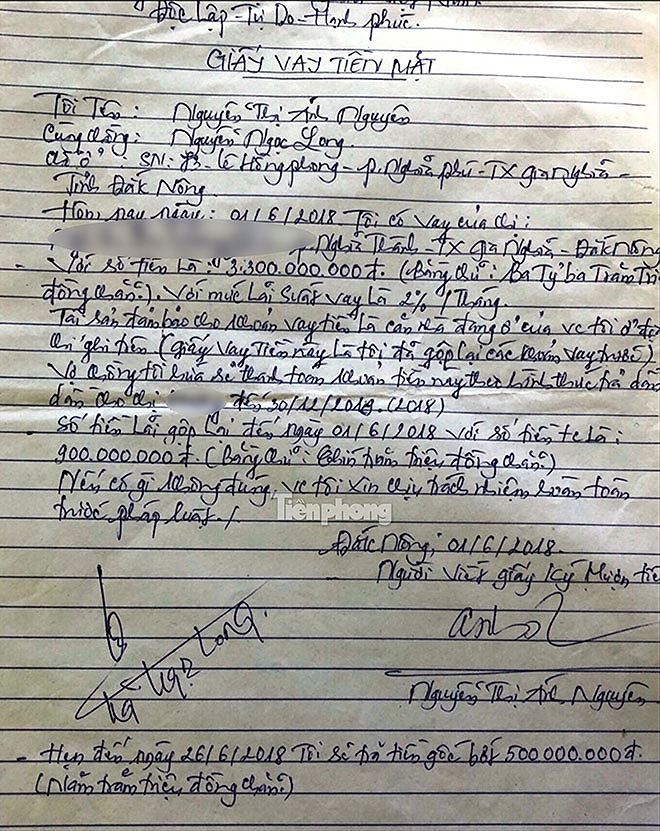 Độc Lập - Tự Do - Hạnh phúc.
GIẤY VAY TIỀN MẶT
Tôi Tên: Nguyễn Thị Ánh Nguyên
Cùng chồng: Nguyễn Ngọc Long.
chỗ ở: SN: Lê Hồng phong - p. Nghĩa phú - TX gia Nghĩa -
Tỉnh Đắk Nông.
Hôm nay ngày: 01/6/2018 Tôi có vay của chị:
p. Nghĩa Thành - TX Gia Nghĩa - Đắk Nông
- Với số tiền là: 3.300.000.000đ. (Bằng chữ: Ba Tỷ ba Trăm Tri
đồng chẵn). Với mức lãi suất vay là 2% / Tháng.
Tài sản đảm bảo cho khoản vay tiền là căn nhà đang ở của vc tôi ở
chỉ ghi trên (giấy vay tiền này là tôi đã gộp lại các khoản vay trước)
Vợ chồng tôi hứa sẽ thanh toán khoản tiền này theo hình thức trả dần
dần cho chị đến 30/12/2018. (2018)
- Số tiền lãi gộp lại đến ngày 01/6/2018 với số tiền là:
900.000.000đ. (Bằng chữ: Chín trăm triệu đồng chẵn)
Nếu có gì không đúng, vc tôi xin chịu trách nhiệm hoàn toàn
trước pháp luật./.
Tiềnphong
Đắk Nông, 01/6/2018.
Người viết giấy ký Mượn tiề
Ngọc Long.
Nguyễn Thị Ánh Nguyên
- Hẹn đến ngày 26/6/2018 Tôi sẽ trả tiền gốc bớt 500.000.000đ.
(Năm trăm triệu đồng chẵn)